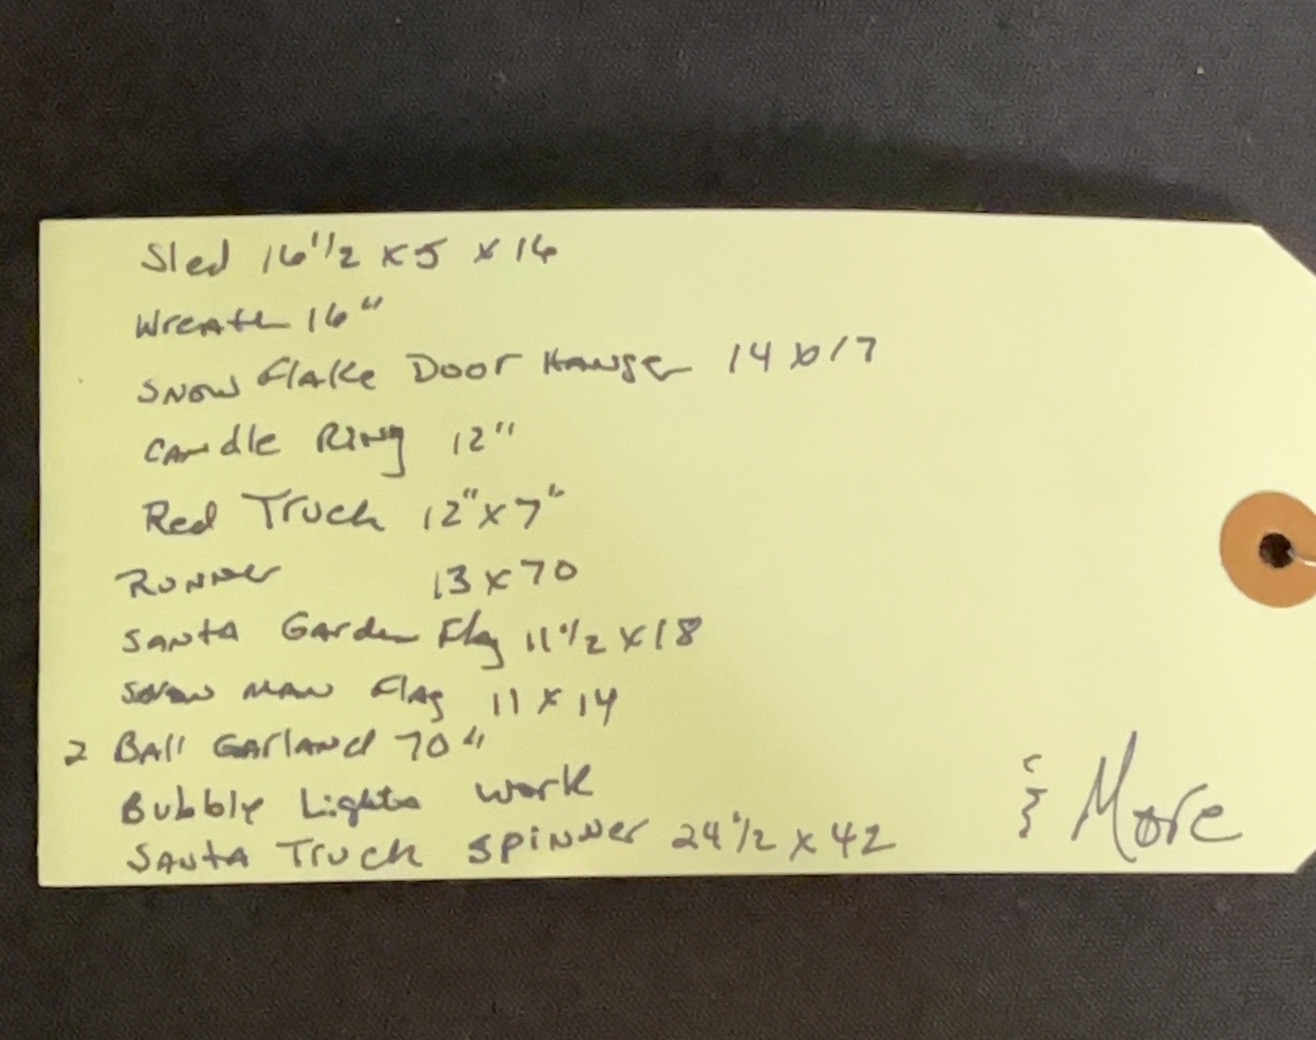 Sled 16 1/2 x 5 x 16
Wreath 16"
Snow Flake Door Hanger 14 x 17
Candle Ring 12"
Red Truck 12" x 7"
Runner 13 x 70
Santa Garden Flag 11 1/2 x 18
Snow Man Flag 11 x 14
2 Ball Garland 70"
Bubbly Lights work
Santa Truck Spinner 24 1/2 x 42
& More